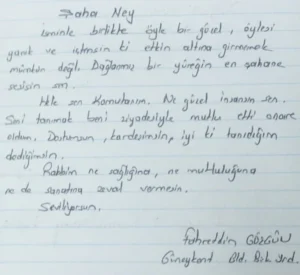 Şaha Ney
İsminle birlikte öyle bir güzel, öylesi
yanık ve içtensin ki etkin altına girmemek
mümkün değil. Dağlanmış bir yüreğin en şahane
sesisin sen.
Hele sen Komutanım. Ne güzel insansın sen.
Seni tanımak beni ziyadesiyle mutlu etti onare
oldum. Dostumsun, kardeşimsin, iyi ki tanıdığım
dediğimsin.
Rabbim ne sağlığına, ne mutluluğuna
ne de sanatına zeval vermesin.
Seviliyorsun.
Fahreddin GÖZGÜN
Güneykent Bld.